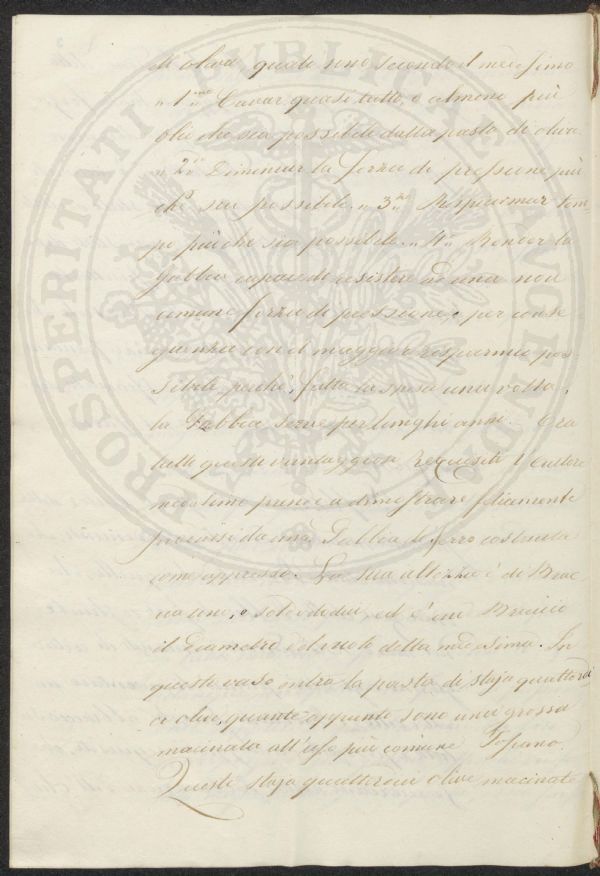 di oliva, quali sono secondo il medesimo
„ 1.mo Cavar quasi tutto, o almeno più
olio che sia possibile dalla pasta di olive
„ 2.o Diminuir la forza di pressione più
che sia possibile „ 3.zo Rispiarmar tem-
po più che sia possibile. „ 4.o Render la
Gabbia capace di resistere ad una non
comune forza di pressione, e per conse
guenza con il maggior rispiarmio pos-
sibile, perchè, fatta la spesa una volta,
la Gabbia serve per lunghi anni. Ora
tutti questi vantaggiosi requisiti l'Autore
medesimo prende a dimostrare
da una Gabbia di ferro costruita
come appresso. La sua altezza è di Brac
cia uno, e soldi dodici, ed è un Braccio
il Diametro del vuoto della medesima. In
questo caso entra la pasta di staja quattordi
ci olive, quante appunto sono una grossa
macinata all'uso più comune Toscano.
Queste staja quattordici olive macinate
PROSPERITATI PUBLICAE AUGENDAE